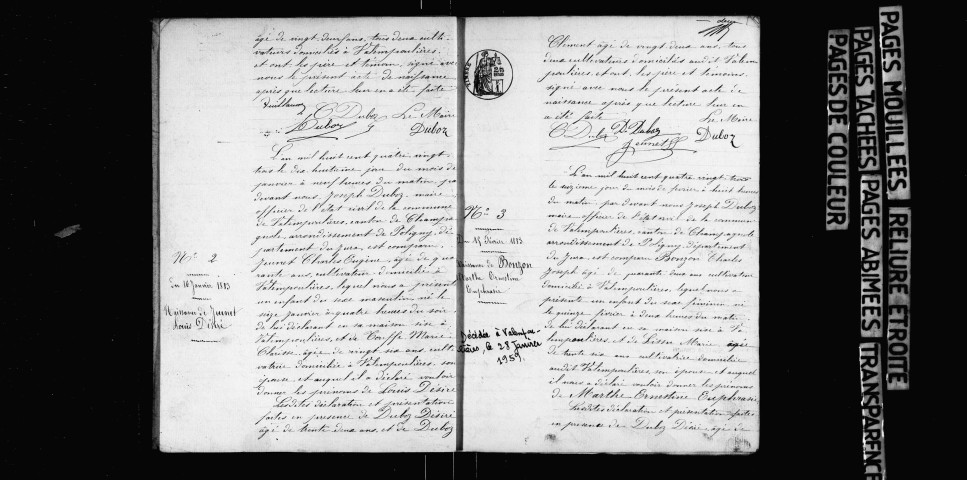 âgé de vingt deux ans, tous deux culti-
vateurs domiciliés à Valempoulières,
et ont, les père et témoins, signé avec
nous le présent acte de naissance
après que lecture leur en a été faite
C. Duboz Le Maire
Duboz Duboz
L'an mil huit cent quatre vingt
trois le dix huitième jour du mois de
janvier à neuf heures du matin, par
devant nous Joseph Duboz, maire
officier de l'état civil de la commune
de Valempoulières, canton de Champa
gnole, arrondissement de Poligny, dé
partement du Jura, est comparu
Jeunet Charles Eugène, âgé de qua
rante ans, cultivateur, domicilié à
Valempoulières, lequel nous a présenté
un enfant du sexe masculin, né le
seize janvier à quatre heures du soir
de lui déclarant en sa maison sise à
Valempoulières, et de Marie
âgée de vingt six ans, culti
vatrice domiciliée à Valempoulières, son
épouse et auquel il a déclaré vouloir
donner les prénoms de Louis Désiré
Lesdites déclaration et présentation
faites en présence de Duboz Désiré
âgé de trente deux ans, et de Duboz
N° 2
Du 16 Janvier 1883
Naissance de Jeunet
Louis Désiré
Clément âgé de vingt deux ans, tous
deux cultivateurs domiciliés audit Valem
poulières, et ont, les père et témoins,
signé avec nous le présent acte de
naissance après que lecture leur en
a été faite Le Maire
C. Duboz D. Duboz Duboz
Jeunet
L'an mil huit cent quatre vingt trois
le seizième jour du mois de février à huit heures
du matin par devant nous Joseph Duboz
maire officier de l'état civil de la commune
de Valempoulières, canton de Champagnole
arrondissement de Poligny, département
du Jura, est comparu Bonjon Charles
Joseph âgé de quarante deux ans cultivateur
domicilié à Valempoulières, lequel nous a
présenté un enfant du sexe féminin né
le quinze février à deux heures du matin
de lui déclarant en sa maison sise à Va
lempoulières, et de Marie âgée
de trente six ans cultivatrice domiciliée
audit Valempoulières, son épouse et auquel
il nous a déclaré vouloir donner les prénoms
de Marthe Ernestine Euphrasie
Lesdites déclaration et présentation faites
en présence de Duboz Désiré, âgé de
N° 3
Du 15 Février 1883
Naissance de Bonjon
Marthe Ernestine
Euphrasie
Décédée à Valempou-
lières, le 28 Janvier
1959.
PAGES MOUILLEES RELIURE ETROITE
PAGES TACHEES PAGES ABIMEES TRANSPARENCE
PAGES DE COULEUR